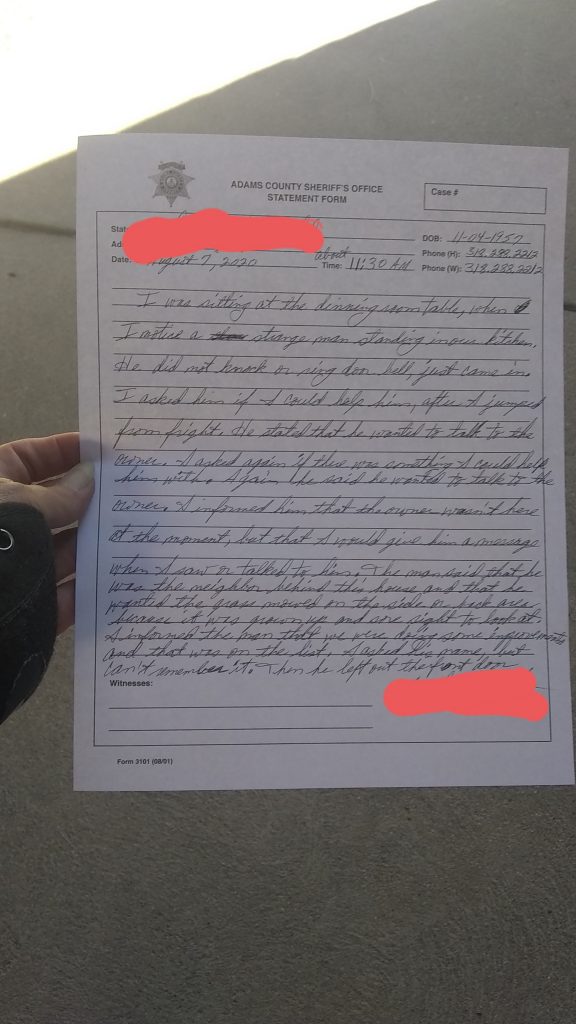 ADAMS COUNTY SHERIFF'S OFFICE
STATEMENT FORM
Case #
DOB: 11-04-1957
Phone (H): 319.288.2212
Date: August 7, 2020 about Time: 11:30 AM Phone (W): 319.288.2212
I was sitting at the dinning room table, when
I notice a strange man standing in our kitchen.
He did not knock or ring door bell, just came in.
I asked him if I could help him, after I jumped
from fright. He stated that he wanted to talk to the
owner. I asked again if there was something I could help
him with. Again he said he wanted to talk to the
owner. I informed him that the owner wasn't here
at the moment, but that I would give him a message
when I saw or talked to him. The man said that he
was the neighbor behind this house and that he
wanted the grass mowed on the side or back area
because it was grown up and sore sight to look at.
I informed the man that we were doing some improvements
and that was on the list. I asked his name, but
can't remember it. Then he left out the front door
Witnesses:
Form 3101 (08/01)